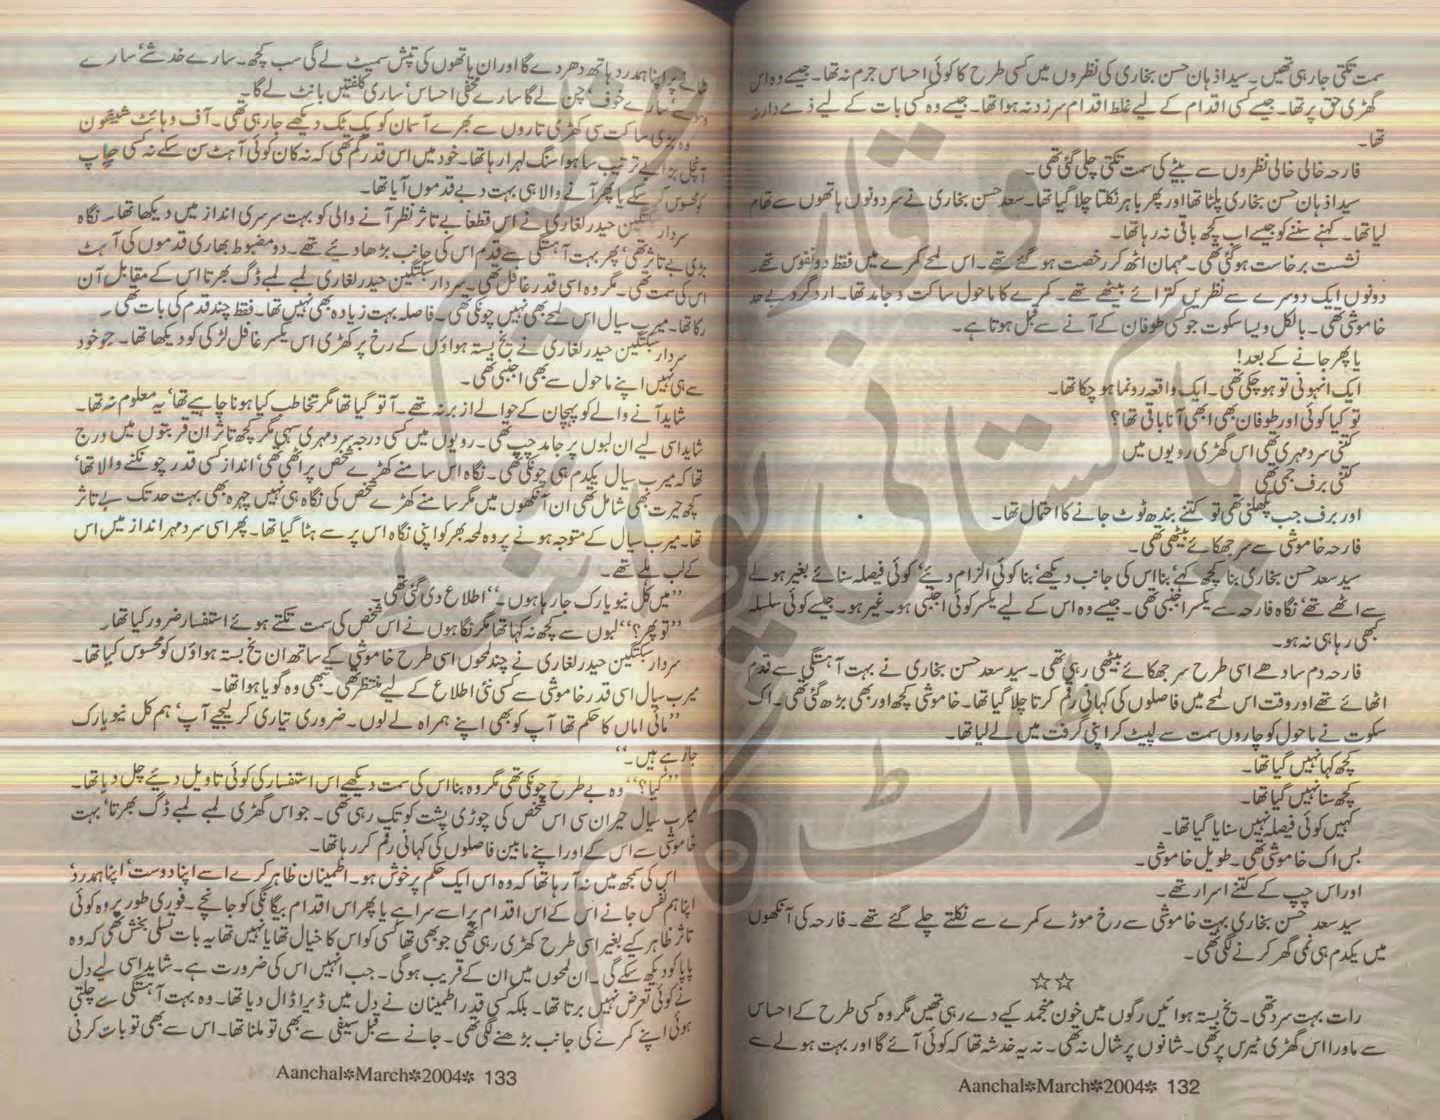 سمت تکتی جا رہی تھیں۔ سید اذہان حسن بخاری کی نظروں میں کسی طرح کا کوئی احساس جرم نہ تھا۔ جیسے وہ اس
گھڑی حق پر تھا۔ جیسے کسی اقدام کے لیے غلط اقدام سرزد نہ ہوا تھا۔ جیسے وہ کسی بات کے لیے ذمے دار نہ
تھا۔
فارحہ خالی خالی نظروں سے بیٹے کی سمت تکتی چلی گئی تھی۔
سید اذہان حسن بخاری پلٹا تھا اور پھر باہر نکلتا چلا گیا تھا۔ سعد حسن بخاری نے سر دونوں ہاتھوں سے تھام
لیا تھا۔ کہنے سننے کو جیسے اب کچھ باقی نہ رہا تھا۔
نشست برخاست ہو گئی تھی۔ مہمان اٹھ کر رخصت ہو گئے تھے۔ اس لمحے کمرے میں فقط دو نفوس تھے۔
دونوں ایک دوسرے سے نظریں کترائے بیٹھے تھے۔ کمرے کا ماحول ساکت و جامد تھا۔ ارد گرد بے حد
خاموشی تھی۔ بالکل ویسا سکوت جو کسی طوفان کے آنے سے قبل ہوتا ہے۔
یا پھر جانے کے بعد!
ایک انہونی تو ہو چکی تھی۔ ایک واقعہ رونما ہو چکا تھا۔
تو کیا کوئی اور طوفان بھی ابھی آنا باقی تھا؟
کتنی سرد مہری تھی اس گھڑی رویوں میں
کتنی برف جمی تھی
اور برف جب پگھلنی تھی تو کتنے بندھ ٹوٹ جانے کا احتمال تھا۔
فارحہ خاموشی سے سر جھکائے بیٹھی تھی۔
سید سعد حسن بخاری بنا کچھ کہے، بنا اس کی جانب دیکھے، بنا کوئی الزام دیئے، کوئی فیصلہ سنائے بغیر ہولے
سے اٹھے تھے، نگاہ فارحہ سے یکسر اجنبی تھی۔ جیسے وہ اس کے لیے یکسر کوئی اجنبی ہو۔ غیر ہو۔ جیسے کوئی سلسلہ
کبھی رہا ہی نہ ہو۔
فارحہ دم سادھے اسی طرح سر جھکائے بیٹھی رہی تھی۔ سید سعد حسن بخاری نے بہت آہستگی سے قدم
اٹھائے تھے اور وقت اس لمحے میں فاصلوں کی کہانی رقم کرتا چلا گیا تھا۔ خاموشی کچھ اور بھی بڑھ گئی تھی۔ اک
سکوت نے ماحول کو چاروں سمت سے لپیٹ کر اپنی گرفت میں لے لیا تھا۔
کچھ کہا نہیں گیا تھا۔
کچھ سنا نہیں گیا تھا۔
کہیں کوئی فیصلہ نہیں سنایا گیا تھا۔
بس اک خاموشی تھی۔ طویل خاموشی۔
اور اس چپ کے کتنے اسرار تھے۔
سید سعد حسن بخاری بہت خاموشی سے رخ موڑے کمرے سے نکلتے چلے گئے تھے۔ فارحہ کی آنکھوں
میں یکدم ہی نمی گھر کرنے لگی تھی۔
☆☆
رات بہت سرد تھی۔ یخ بستہ ہوائیں رگوں میں خون منجمد کیے دے رہی تھیں مگر وہ کسی طرح کے احساس
سے ماورا اس گھڑی ٹیرس پر تھی۔ شانوں پر شال نہ تھی۔ نہ یہ خدشہ تھا کہ کوئی آئے گا اور بہت ہولے سے
Aanchal✲March✲2004✲ 132
پر اپنا ہمدرد ہاتھ دھر دے گا اور ان ہاتھوں کی تپش سمیٹ لے گی سب کچھ۔ سارے خدشے، سارے
سارے خوف، چن لے گا سارے مخفی احساس، ساری کلفتیں بانٹ لے گا۔
وہ بڑی ساکت سی کھڑی تاروں سے بھرے آسمان کو یک ٹک دیکھے جا رہی تھی۔ آف وہائٹ شیفون
آنچل بڑا بے ترتیب سا ہوا سنگ لہرا رہا تھا۔ خود میں اس قدر گم تھی کہ نہ کان کوئی آہٹ سن سکے نہ کسی چاپ
کو محسوس کر سکے یا پھر آنے والا ہی بہت دبے قدموں آیا تھا۔
سردار سبکتگین حیدر لغاری نے اس قطعاً بے تاثر نظر آنے والی کو بہت سرسری انداز میں دیکھا تھا۔ نگاہ
بڑی بے تاثر تھی، پھر بہت آہستگی سے قدم اس کی جانب بڑھا دیئے تھے۔ دو مضبوط بھاری قدموں کی آہٹ
اس کی سمت تھی۔ مگر وہ اسی قدر غافل تھی۔ سردار سبکتگین حیدر لغاری لمبے لمبے ڈگ بھرتا اس کے مقابل آن
رکا تھا۔ میرب سیال اس لمحے بھی نہیں چونکی تھی۔ فاصلہ بہت زیادہ بھی نہیں تھا۔ فقط چند قدم کی بات تھی۔
سردار سبکتگین حیدر لغاری نے یخ بستہ ہواؤں کے رخ پر کھڑی اس یکسر غافل لڑکی کو دیکھا تھا۔ جو خود
سے ہی نہیں اپنے ماحول سے بھی اجنبی تھی۔
شاید آنے والے کو پہچان کے حوالے از بر نہ تھے۔ آ تو گیا تھا مگر تخاطب کیا ہونا چاہیے تھا، یہ معلوم نہ تھا۔
شاید اسی لیے ان لبوں پر جامد چپ تھی۔ رویوں میں کسی درجہ سرد مہری سہی مگر کچھ تاثر ان قربتوں میں درج
تھا کہ میرب سیال یکدم ہی چونکی تھی۔ نگاہ اس سامنے کھڑے شخص پر اٹھی تھی، انداز کسی قدر چونکنے والا تھا،
کچھ حیرت بھی شامل تھی ان آنکھوں میں مگر سامنے کھڑے شخص کی نگاہ ہی نہیں چہرہ بھی بہت حد تک بے تاثر
تھا۔ میرب سیال کے متوجہ ہونے پر وہ لمحہ بھر کو اپنی نگاہ اس پر سے ہٹا گیا تھا۔ پھر اسی سرد مہر انداز میں اس
کے لب ہلے تھے۔
"میں کل نیویارک جا رہا ہوں۔" اطلاع دی گئی تھی۔
"تو پھر؟" لبوں سے کچھ نہ کہا تھا مگر نگاہوں نے اس شخص کی سمت تکتے ہوئے استفسار ضرور کیا تھا۔
سردار سبکتگین حیدر لغاری نے چند لمحوں اسی طرح خاموشی کے ساتھ ان یخ بستہ ہواؤں کو محسوس کیا تھا۔
میرب سیال اسی قدر خاموشی سے کسی نئی اطلاع کے لیے منتظر تھی۔ تبھی وہ گویا ہوا تھا۔
"مائی اماں کا حکم تھا آپ کو بھی اپنے ہمراہ لے لوں۔ ضروری تیاری کر لیجیے آپ، ہم کل نیویارک
جا رہے ہیں۔"
"کیا؟" وہ بے طرح چونکی تھی مگر وہ بنا اس کی سمت دیکھے اس استفسار کی کوئی تاویل دیئے چل دیا تھا۔
میرب سیال حیران سی اس شخص کی چوڑی پشت کو تک رہی تھی۔ جو اس گھڑی لمبے لمبے ڈگ بھرتا، بہت
خاموشی سے اس کے اور اپنے مابین فاصلوں کی کہانی رقم کر رہا تھا۔
اس کی سمجھ میں نہ آ رہا تھا کہ وہ اس ایک حکم پر خوش ہو۔ اطمینان ظاہر کرے اسے اپنا دوست، اپنا ہمدرد،
اپنا ہم نفس جانے اس کے اس اقدام پر اسے سراہے یا پھر اس اقدام بیگانگی کو جانچے۔ فوری طور پر وہ کوئی
تاثر ظاہر کیے بغیر اسی طرح کھڑی رہی تھی جو بھی تھا کسی کو اس کا خیال تھا یا نہیں تھا یہ بات تسلی بخش تھی کہ وہ
پاپا کو دیکھ سکے گی۔ ان لمحوں میں ان کے قریب ہو گی۔ جب انہیں اس کی ضرورت ہے۔ شاید اسی لیے دل
نے کوئی تعرض نہیں برتا تھا۔ بلکہ کسی قدر اطمینان نے دل میں ڈیرا ڈال دیا تھا۔ وہ بہت آہستگی سے چلتی
ہوئی اپنے کمرے کی جانب بڑھنے لگی تھی۔ جانے سے قبل سیفی سے بھی تو ملنا تھا۔ اس سے بھی تو بات کرنی
Aanchal✲March✲2004✲ 133
پاکستانی پوائنٹ
ڈاٹ کام